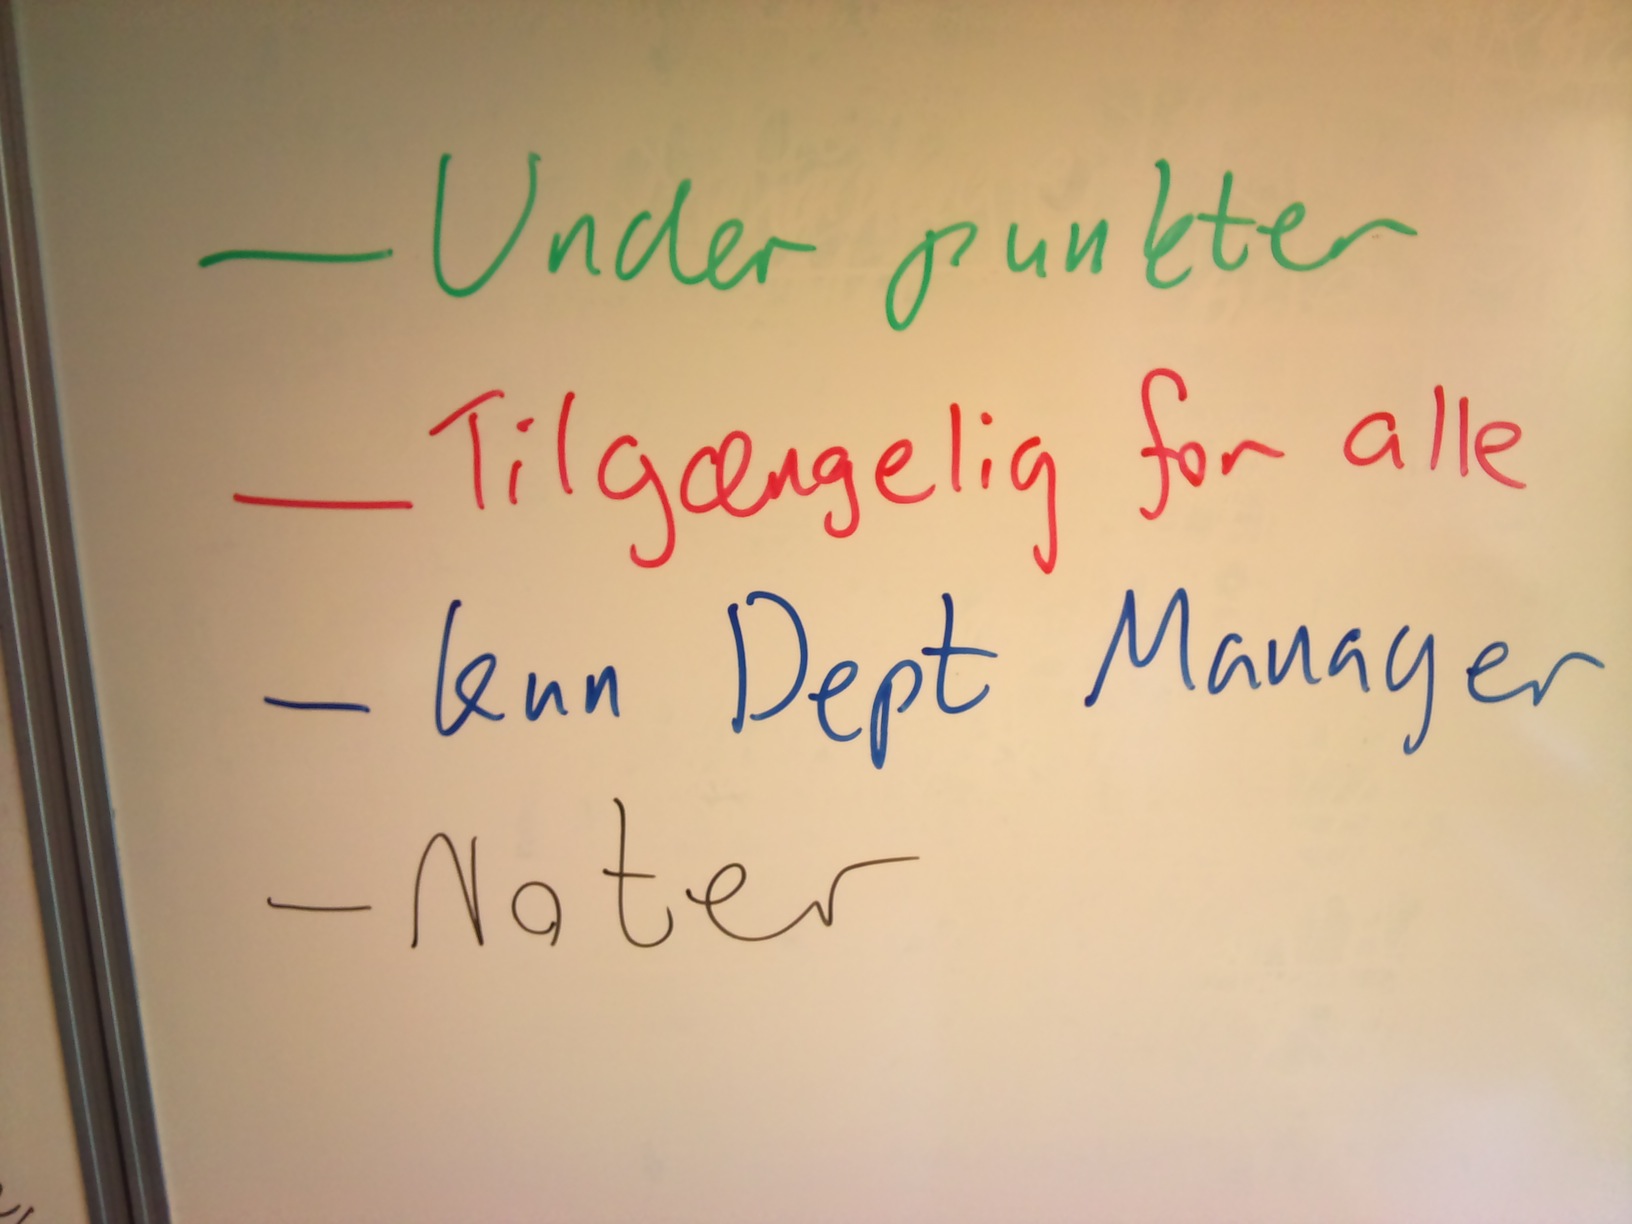 — Under punkter
— Tilgængelig for alle
— kun Dept Manager
— Noter